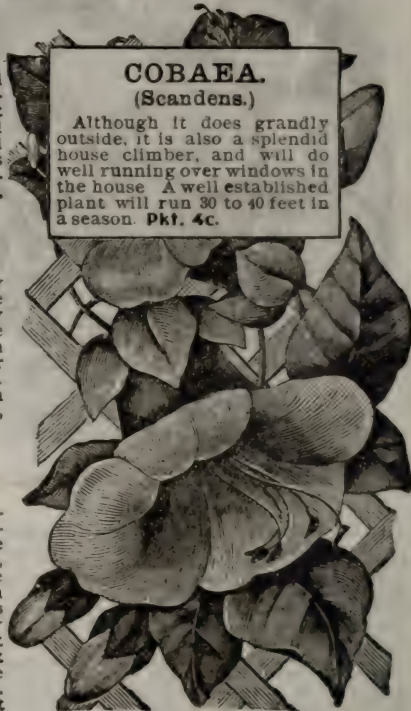 COBAEA.
(Scandens.)
Although it does grandly
outside, it is also a splendid
house climber, and will do
well running over windows in
the house A well established
plant will run 30 to 40 feet in
a season. Pkt. 4c.